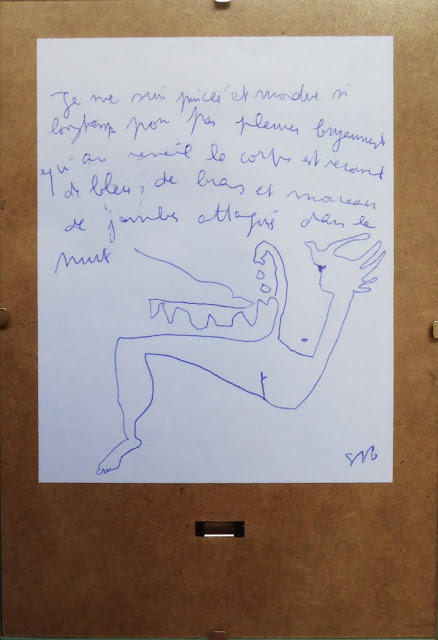 Je me suis pincée et mordue si
longtemps pour pas pleurer bruyamment
qu'au réveil le corps est recouvert
de bleus, de bras et morceaux
de jambes attaqués dans la
nuit